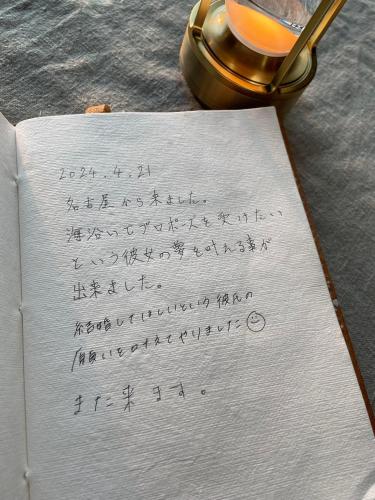 2024.4.21
名古屋から来ました。
海沿いでプロポーズを受けたい
という彼女の夢を叶れる事が
出来ました。
結婚してほしいという彼氏の
願いを叶えてやりました☺
また来ます。